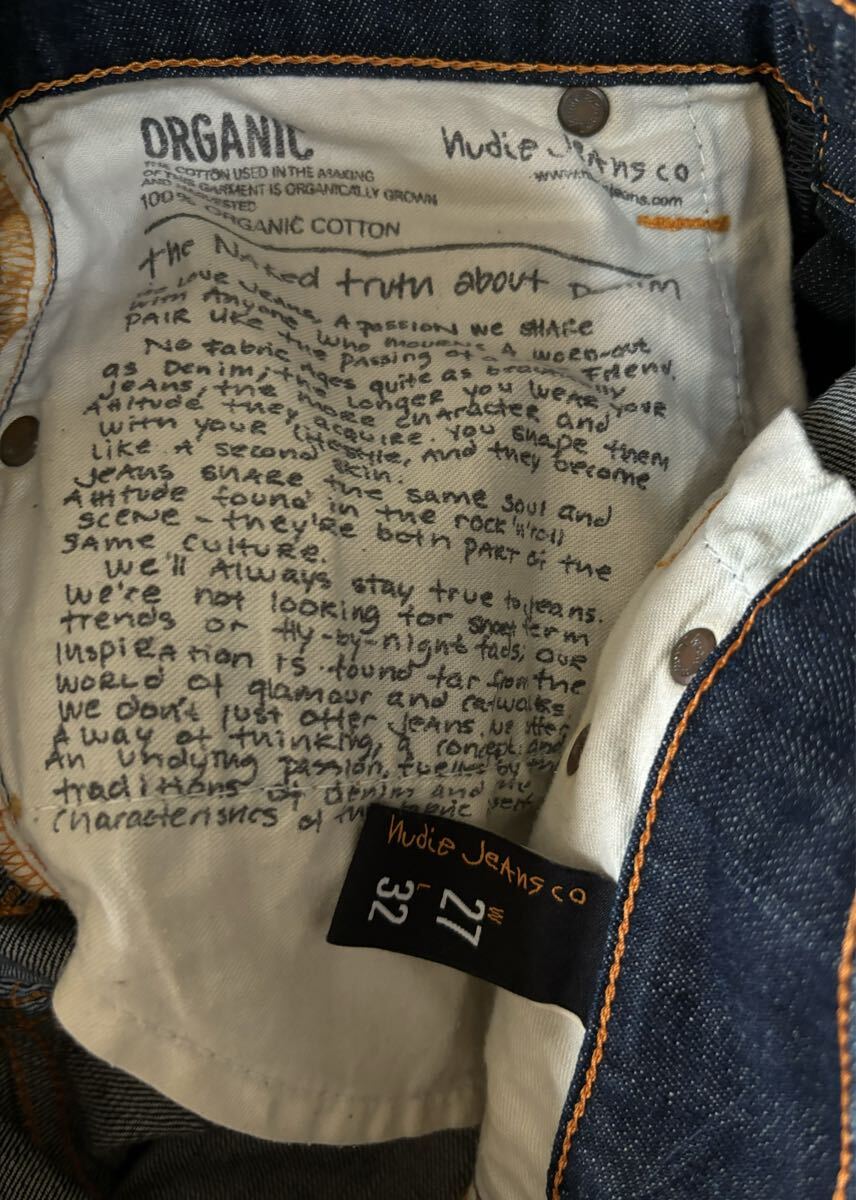 ORGANIC
THE COTTON USED IN THE MAKING
OF THIS GARMENT IS ORGANICALLY GROWN
AND HARVESTED
100% ORGANIC COTTON
Nudie Jeans co
the Naked truth about Denim
We love Jeans, A passion we share
with Anyone who mourns A worn-out
PAIR like the passing of a Friend.
No fabric Ages quite as beautifully
as Denim, the longer you wear your
Jeans, the more character and
Attitude they acquire. You shape them
with your lifestyle, And they become
like A second skin.
Jeans share the same soul and
Attitude found in the rock'n'roll
scene - they're both part of the
same culture.
we'll Always stay true to jeans.
we're not looking for short term
trends or fly-by-night fads, our
Inspiration is found far from the
world of glamour and catwalks
we don't just offer Jeans. We offer
A way of thinking, a concept and
An undying passion, fuelled by the
traditions of denim and the
characteristics of the fabric
Nudie Jeans co
W L
27 32